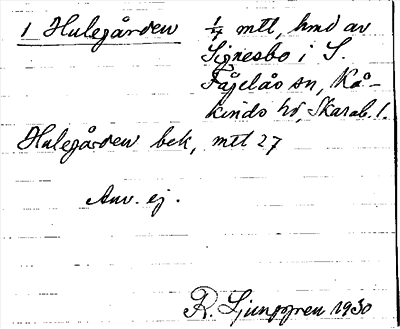 1 Hulegården 1/4 mtl, hmd av
Signesbo i S.
Fågelås sn, Kå-
kinds hd, Skarab. l.
Hulegården bek, mtl 27
Anv. ej.
R. Ljunggren 1930